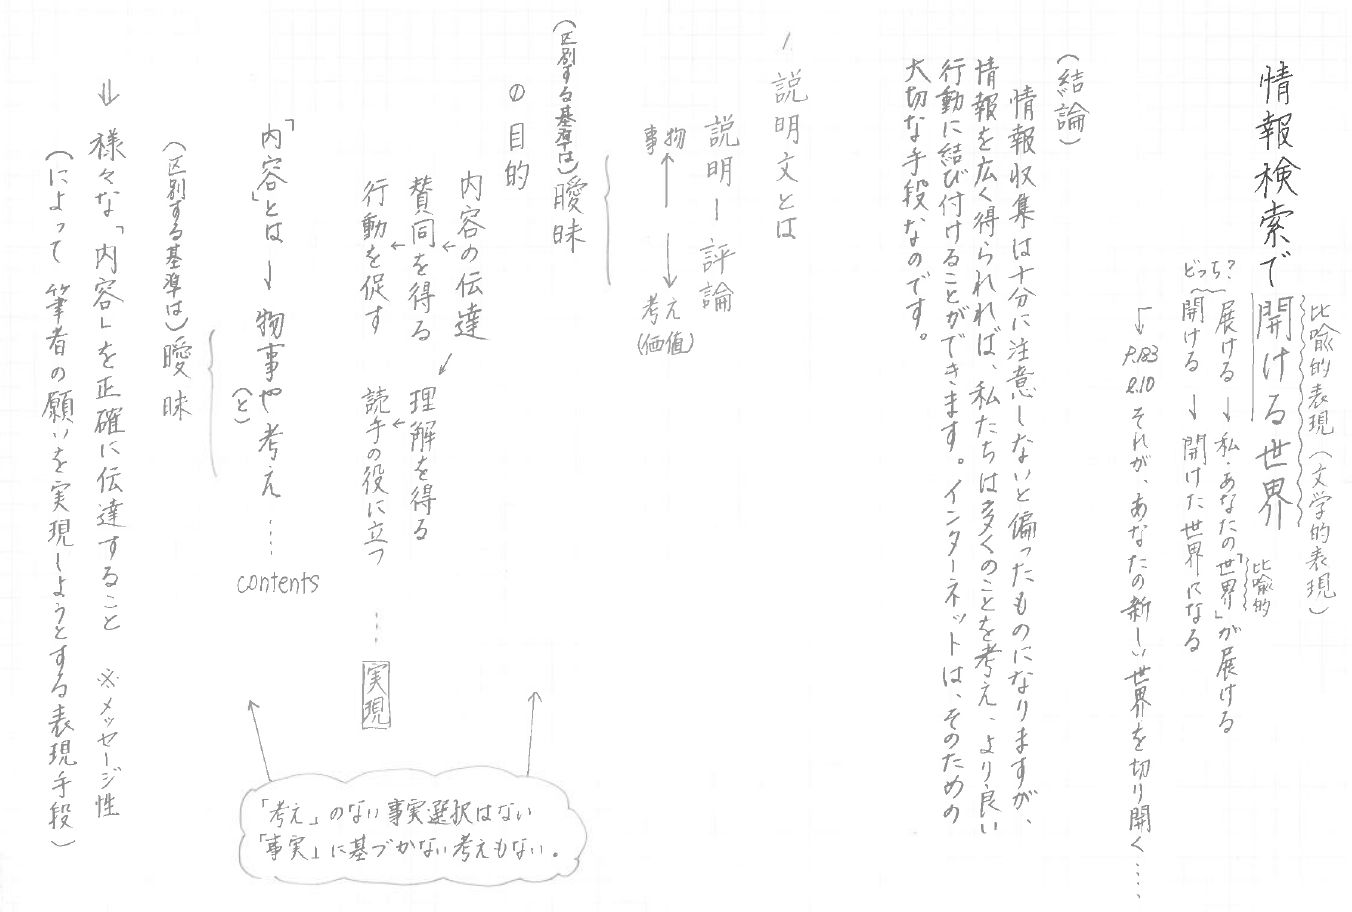 情報検索で開ける世界
比喩的表現(文学的表現)
どっち?
展ける→私・あなたの「世界」が展ける
比喩的
開ける→開けた世界になる
P.183
l.10
それが、あなたの新しい世界を切り開く……
(結論)
情報収集は十分に注意しないと偏ったものになりますが、
情報を広く得られれば、私たちは多くのことを考え、より良い
行動に結び付けることができます。インターネットは、そのための
大切な手段なのです。
説明文とは
説明ー評論
事物←→考え
(価値)
(区別する基準は)曖昧
目的
内容の伝達
賛同を得る
理解を得る
行動を促す
読手の役に立つ
…
実現
「内容」とは→物事や考え……
(と)
contents
(区別する基準は)曖昧
⇓様々な「内容」を正確に伝達すること ※メッセージ性
(によって筆者の願いを実現しようとする表現手段)
「考え」のない事実選択はない
「事実」に基づかない考えもない。